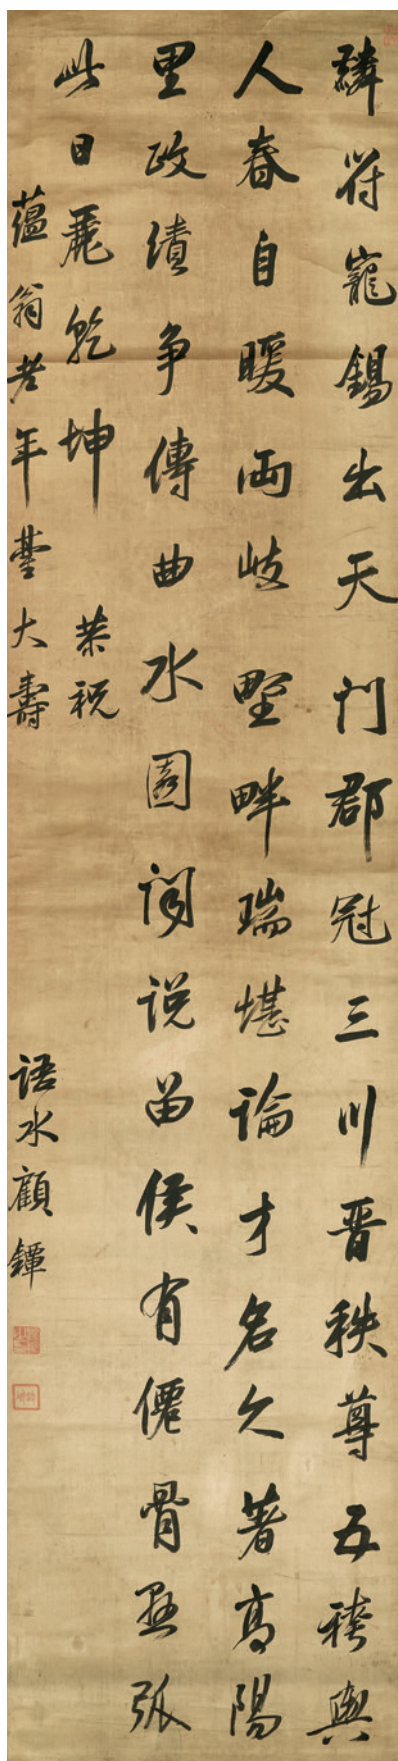 麟符寵錫出天門郡冠三川晋秩尊五袴興
人春自暖両岐野畔瑞堪論才名久著高陽
里政績争傳曲水園聞説留侯有僊骨懸弧
此日麗乾坤 恭祝
蘊翁老年臺大壽
語水顧鐔